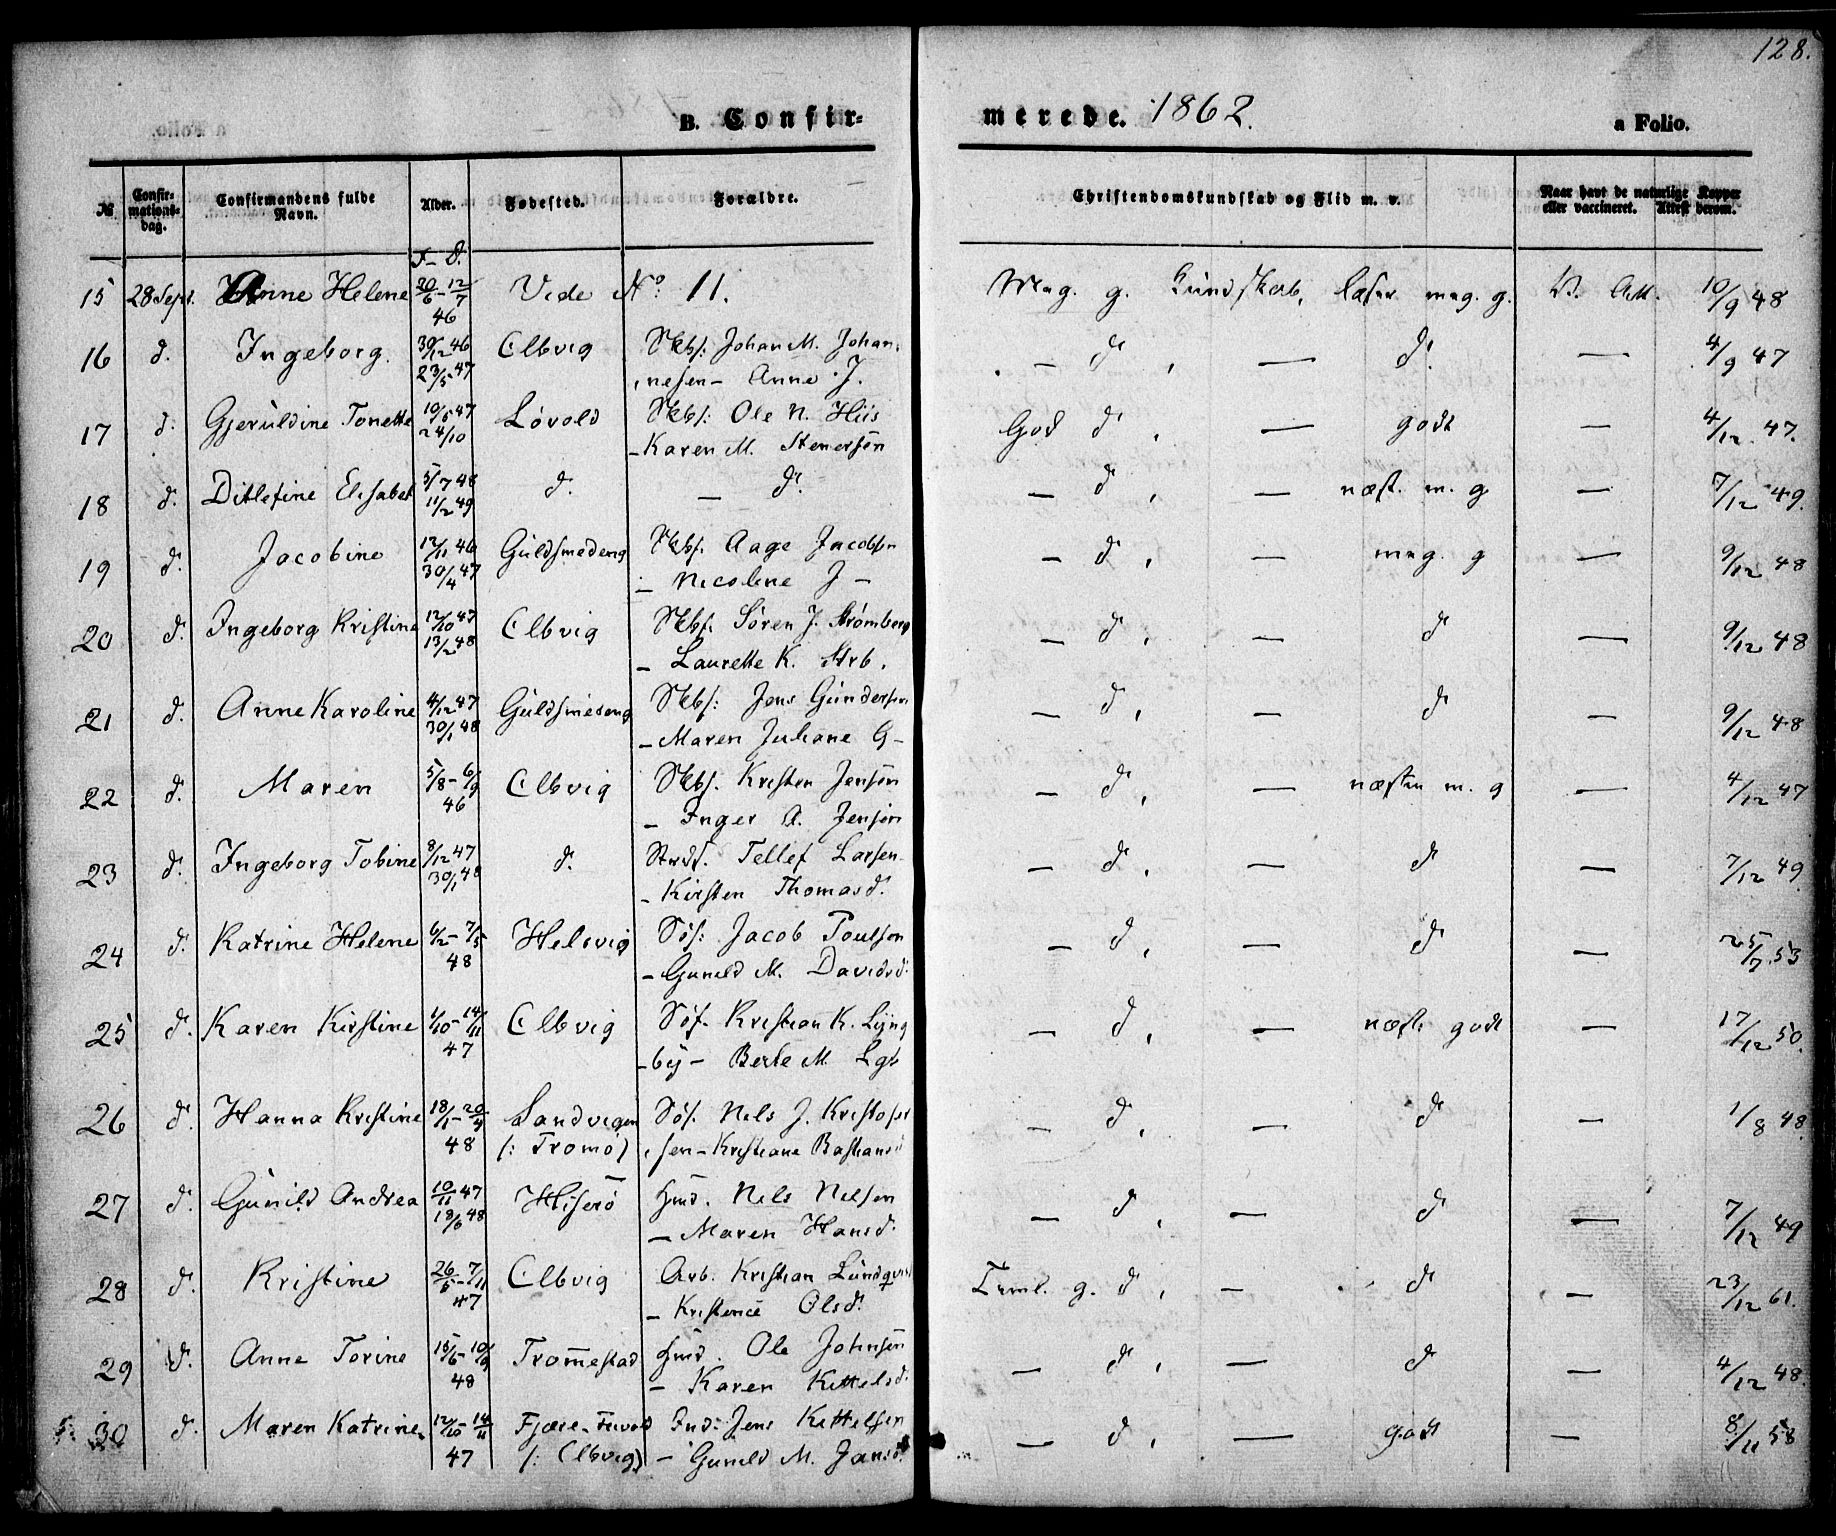 128.
B. Confir-
merede. 1862.
a Folio.
№
Confir-
mations-
dag.
Confirmandens fulde
Navn.
Alder.
Fødested.
Forældre.
Christendomskundskab og Flid m. v.
Naar havt de naturlige Kopper
eller vaccineret. Attest derom.
F- d.
15 28 Sept. Anne Helene 20/6 - 12/7 46 Vide № 11. Meg. g. Kundskab, læser meg. g. V. 10/9 48
16 d. Ingeborg. 30/12 46 Elbvig Skbs: Johan M. Johan, — d, — d. — 4/9 47
23/5 47 nesen - Anne J.
17 d. Gjeruldine Tonette 10/5 47 Løvold Skbs: Ole N. Hiis God d, — godt — 4/12 47.
24/10 - Karen M. Stenersen
18 d. Ditlefine Elisabet 5/7 48 d. — d. — d, — næst. m. g — 7/12 49.
11/2 49
19 d. Jacobine 12/11 46 Guldsmedeng Skbs. Aage Jacobsen — d, — meg. g — 9/12 48
30/4 47 - Nicoline J -
20 d. Ingeborg Kristine 12/10 47 Elbvig Skbs. Søren J. Strømberg — d, — d — 9/12 48
13/2 48 - Laurette K. Strb.
21 d. Anne Karoline 4/12 47 Guldsmedeng Skbs: Jens Gundersen — d, — d — 9/12 48
30/1 48 - Maren Juliane G -
22 d. Maren 5/8 - 6/9 Elbvig Skbs. Kristen Jensen — d, — næsten m. g — 4/12 47
46 - Inger A. Jensen
23 d. Ingeborg Tobine 8/12 47 d. Tellef Larsen — d, — d — 7/12 49.
30/1 48 - Kirsten Thomasd.
24 d. Katrine Helene 6/2 - 7/5 Helsvig Søf: Jacob Poulsen — d, — d — 25/7 53
48 - Gunild M. Davidsd.
25 d. Karen Kirstine 1/10 - 14/11 Elbvig Søf. Kristian K. Lÿng — d, — næst. godt — 17/12 50.
47 - bÿ - Berte M. Lgb
26 d. Hanna Kristine 18/1 - 20/4 Sandvigen Søf. Nils J. Kristofer — d, — d — 1/8 48.
48 (: Tromø) sen - Kristiane Bastiansd
27 d. Gunild Andrea 10/11 47 Hiserø Hmd. Nils Nilsen — d, — d — 7/12 49
18/6 48 - Maren Hansd.
28 d. Kristine 26/5 - 7/11 Elbvig Arb. Kristian Lundqvist Teml. g. d, — d — 23/12 61.
47 - Kristence Olsd.
29 d. Anne Torine 15/6 - 10/9 Tromestad Hmd. Ole Johnsen — d, — d — 4/12 48.
48 - Karen Kittelsd.
30 d. Maren Katrine 12/10 - 14/11 Fjære - Ind. Jens Kittelsen — d, — godt — 8/11 58
47 (: Elbvig) - Gunild M. Jansd.